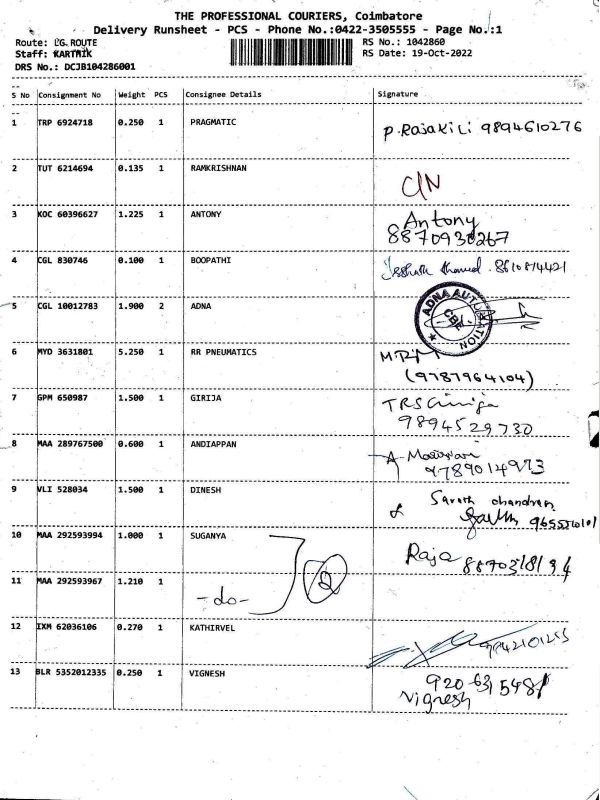 THE PROFESSIONAL COURIERS, Coimbatore
Delivery Runsheet - PCS - Phone No.:0422-3505555 - Page No.:1
Route: LG ROUTE RS No.: 1042860
Staff: KARTHIK RS Date: 19-Oct-2022
DRS No.: DCJB104286001
S No Consignment No Weight PCS Consignee Details Signature
1 TRP 6924718 0.250 1 PRAGMATIC P. Rajakili 9894610276
2 TUT 6214694 0.135 1 RAMKRISHNAN C/N
3 KOC 60396627 1.225 1 ANTONY Antony
8870930267
4 CGL 830746 0.100 1 BOOPATHI
5 CGL 10012783 1.900 2 ADNA ADNA AUTOMATION CBE
6 MYD 3631801 5.250 1 RR PNEUMATICS
(9787964104)
7 GPM 650987 1.500 1 GIRIJA TRS Girija
9894529730
8 MAA 289767500 0.600 1 ANDIAPPAN
9789014973
9 VLI 528034 1.500 1 DINESH Sarath chandran
10 MAA 292593994 1.000 1 SUGANYA Raja
11 MAA 292593967 1.210 1 -do- 2
12 IXM 62036106 0.270 1 KATHIRVEL 9842101255
13 BLR 5352012335 0.250 1 VIGNESH 920 631 5481
Vignesh